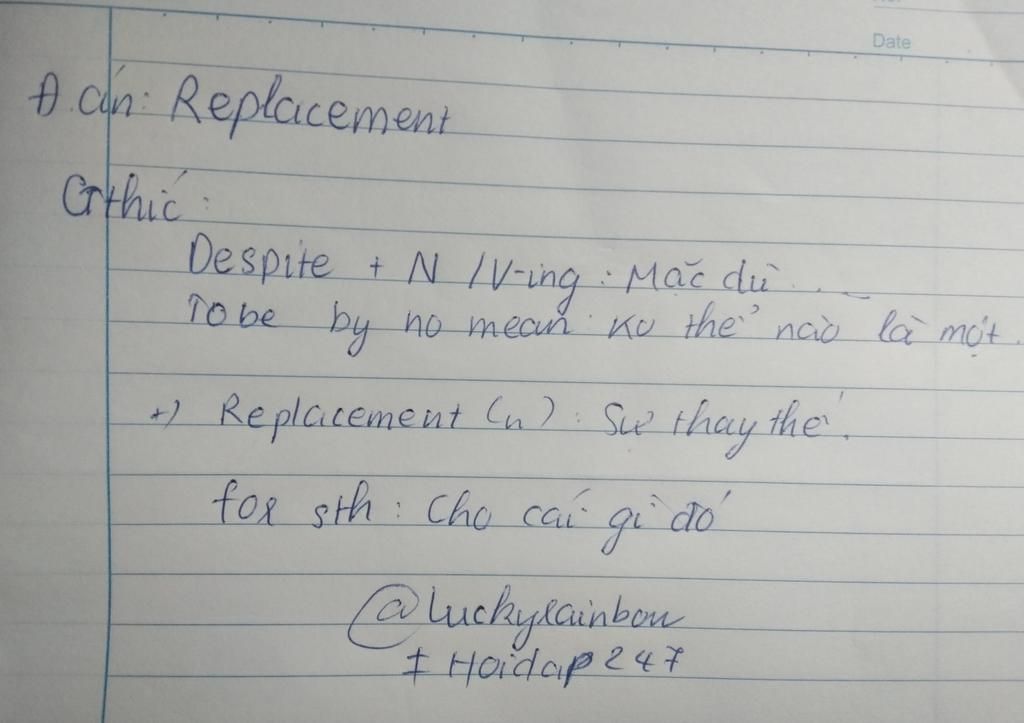 Date
Đ.án: Replacement
Gthíc:
Despite + N /V-ing: Mặc dù...
Tobe by no mean: Ko thể nào là một.
+) Replacement (n): Sự thay thế.
for sth: Cho cái gì đó
@luckyrainbow
# Hoidap247